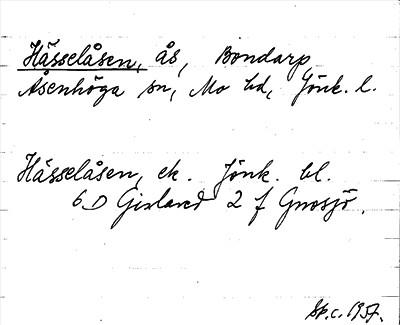 Hässelåsen, ås, Bondarp
Åsenhöga sn, Mo hd, Jönk. l.
Hässelåsen, ek. Jönk. bl.
6D Gislaved 2 f Gnosjö.
Sk.c. 1957.